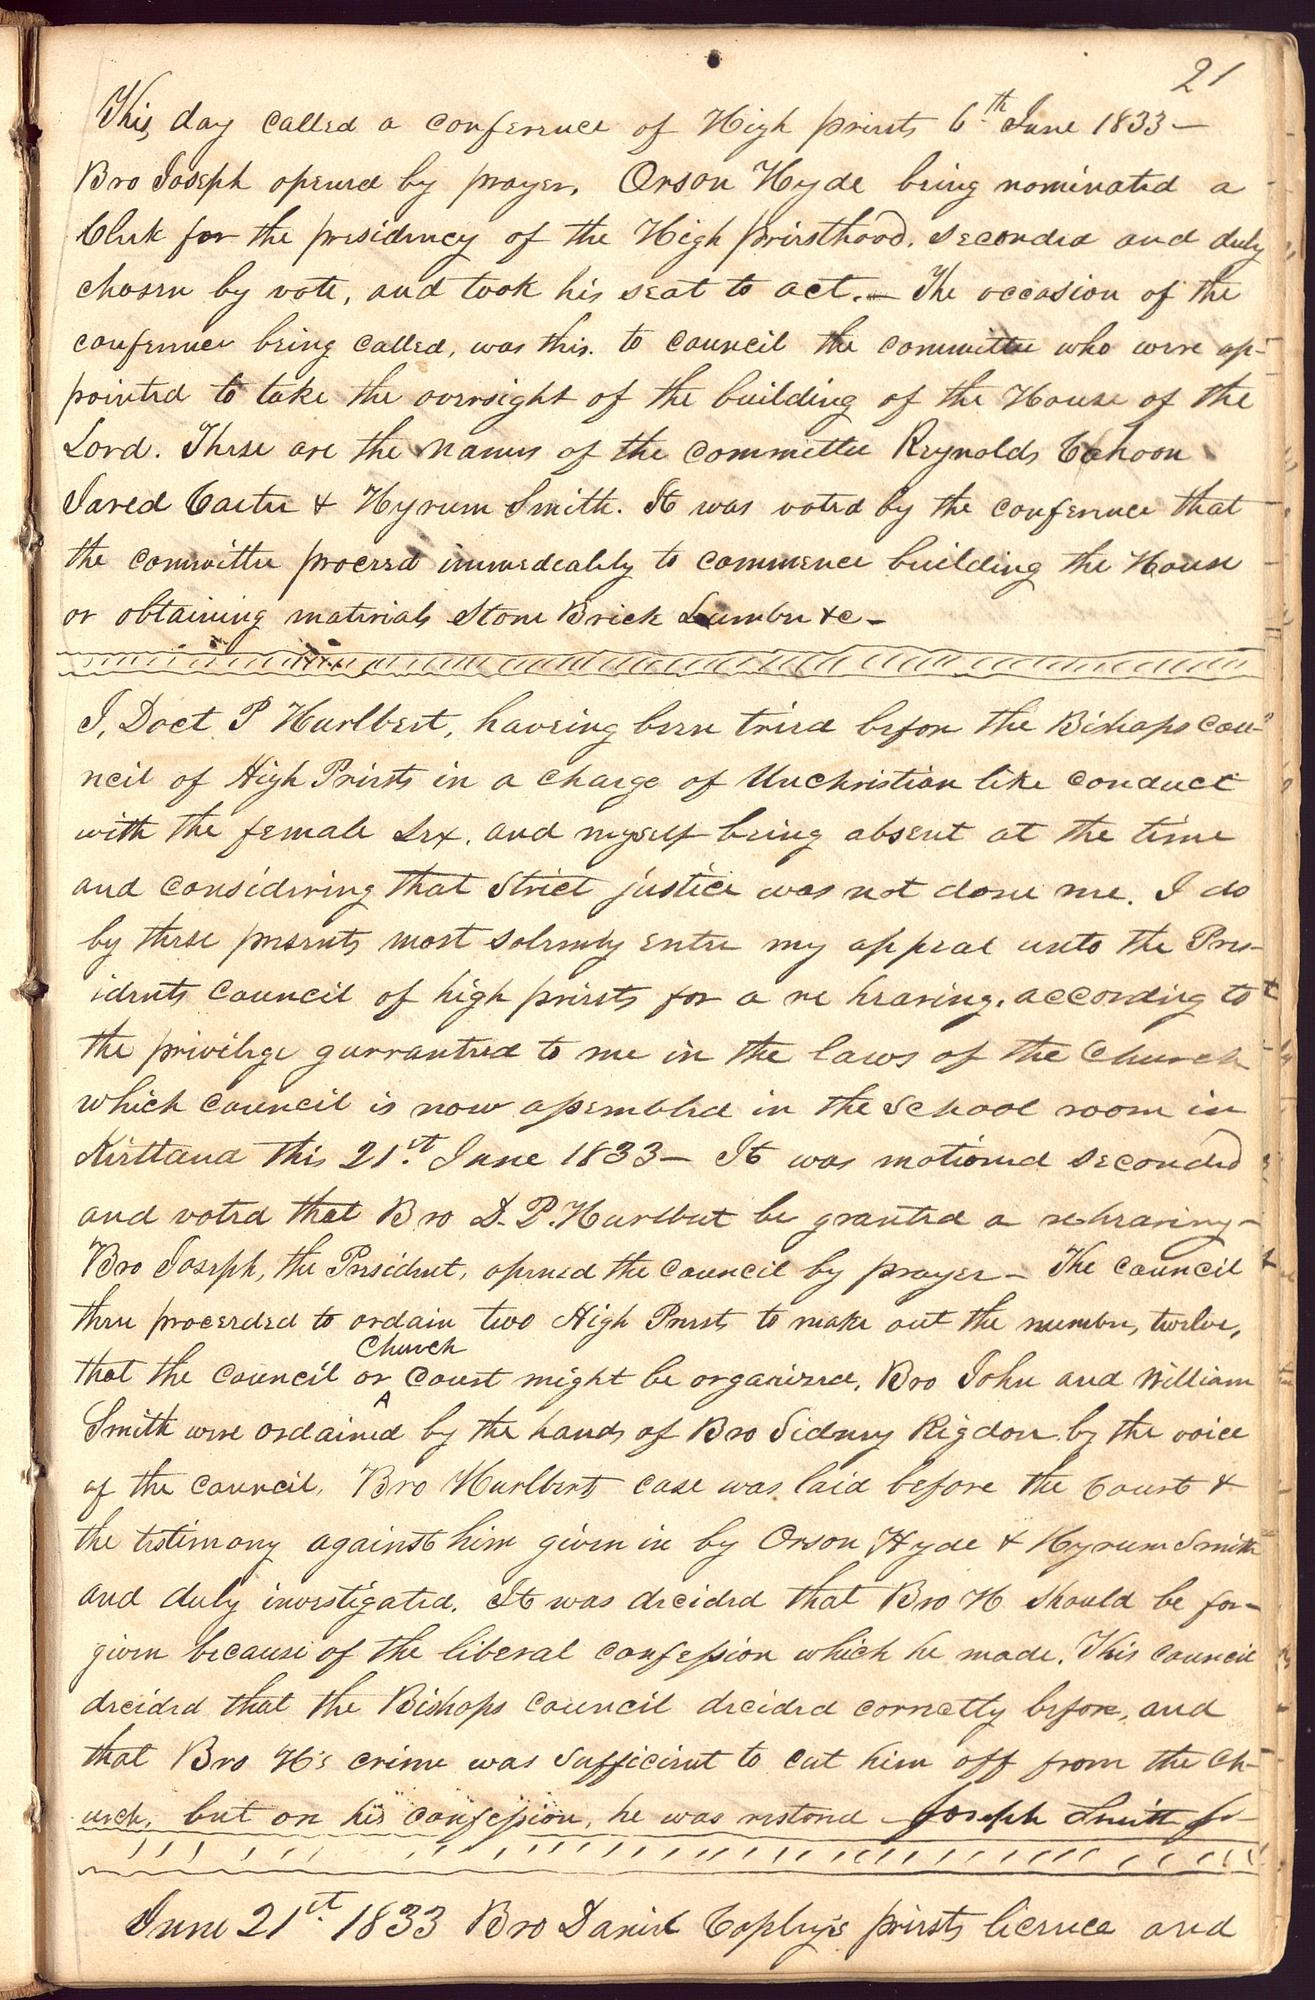 21
This day called a conference of High priests 6th June 1833—
Bro Joseph opened by prayer, Orson Hyde being nominated a
Clerk for the presidency of the High priesthood, seconded and duly
chosen by vote, and took his seat to act.— The occasion of the
conference being called, was this. to council the committee who were ap-
pointed to take the oversight of the building of the House of the
Lord. These are the names of the committee Reynolds Cahoon
Jared Carter & Hyrum Smith. It was voted by the conference that
the committee proceed immedeately to commence building the House
or obtaining materials Stone Brick Lumber &c—
I, Doct P Hurlbert, haveing been tried before the Bishops cou-
ncil of High Priests in a charge of Unchristian like conduct
with the female sex, and myself being absent at the time
and considering that strict justice was not done me. I do
by these presents most solemnly enter my appeal unto the Pres-
idents council of high priests for a re hearing, according to
the privilege gurranteed to me in the laws of the Church
which council is now assembled in the school room in
Kirtland this 21st June 1833— It was motioned seconded
and voted that Bro D. P. Hurlbut be granted a rehearing—
Bro Joseph, the President, opened the council by prayer— The council
then proceeded to ordain two High Priests to make out the number, twelve,
Church
that the council or court might be organized, Bro John and William
Smith were ordained by the hands of Bro Sidney Rigdon by the voice
of the council, Bro Hurlberts case was laid before the Court &
the testimony against him given in by Orson Hyde & Hyrum Smith
and duly investigated. It was decided that Bro H should be for-
given because of the liberal confession which he made. This council
decided that the Bishops council decided correctly before, and
that Bro H's crime was sufficient to cut him off from the ch-
urch, but on his confession, he was restored Joseph Smith Jr—
June 21st 1833 Bro Daniel Copley's priests licence and